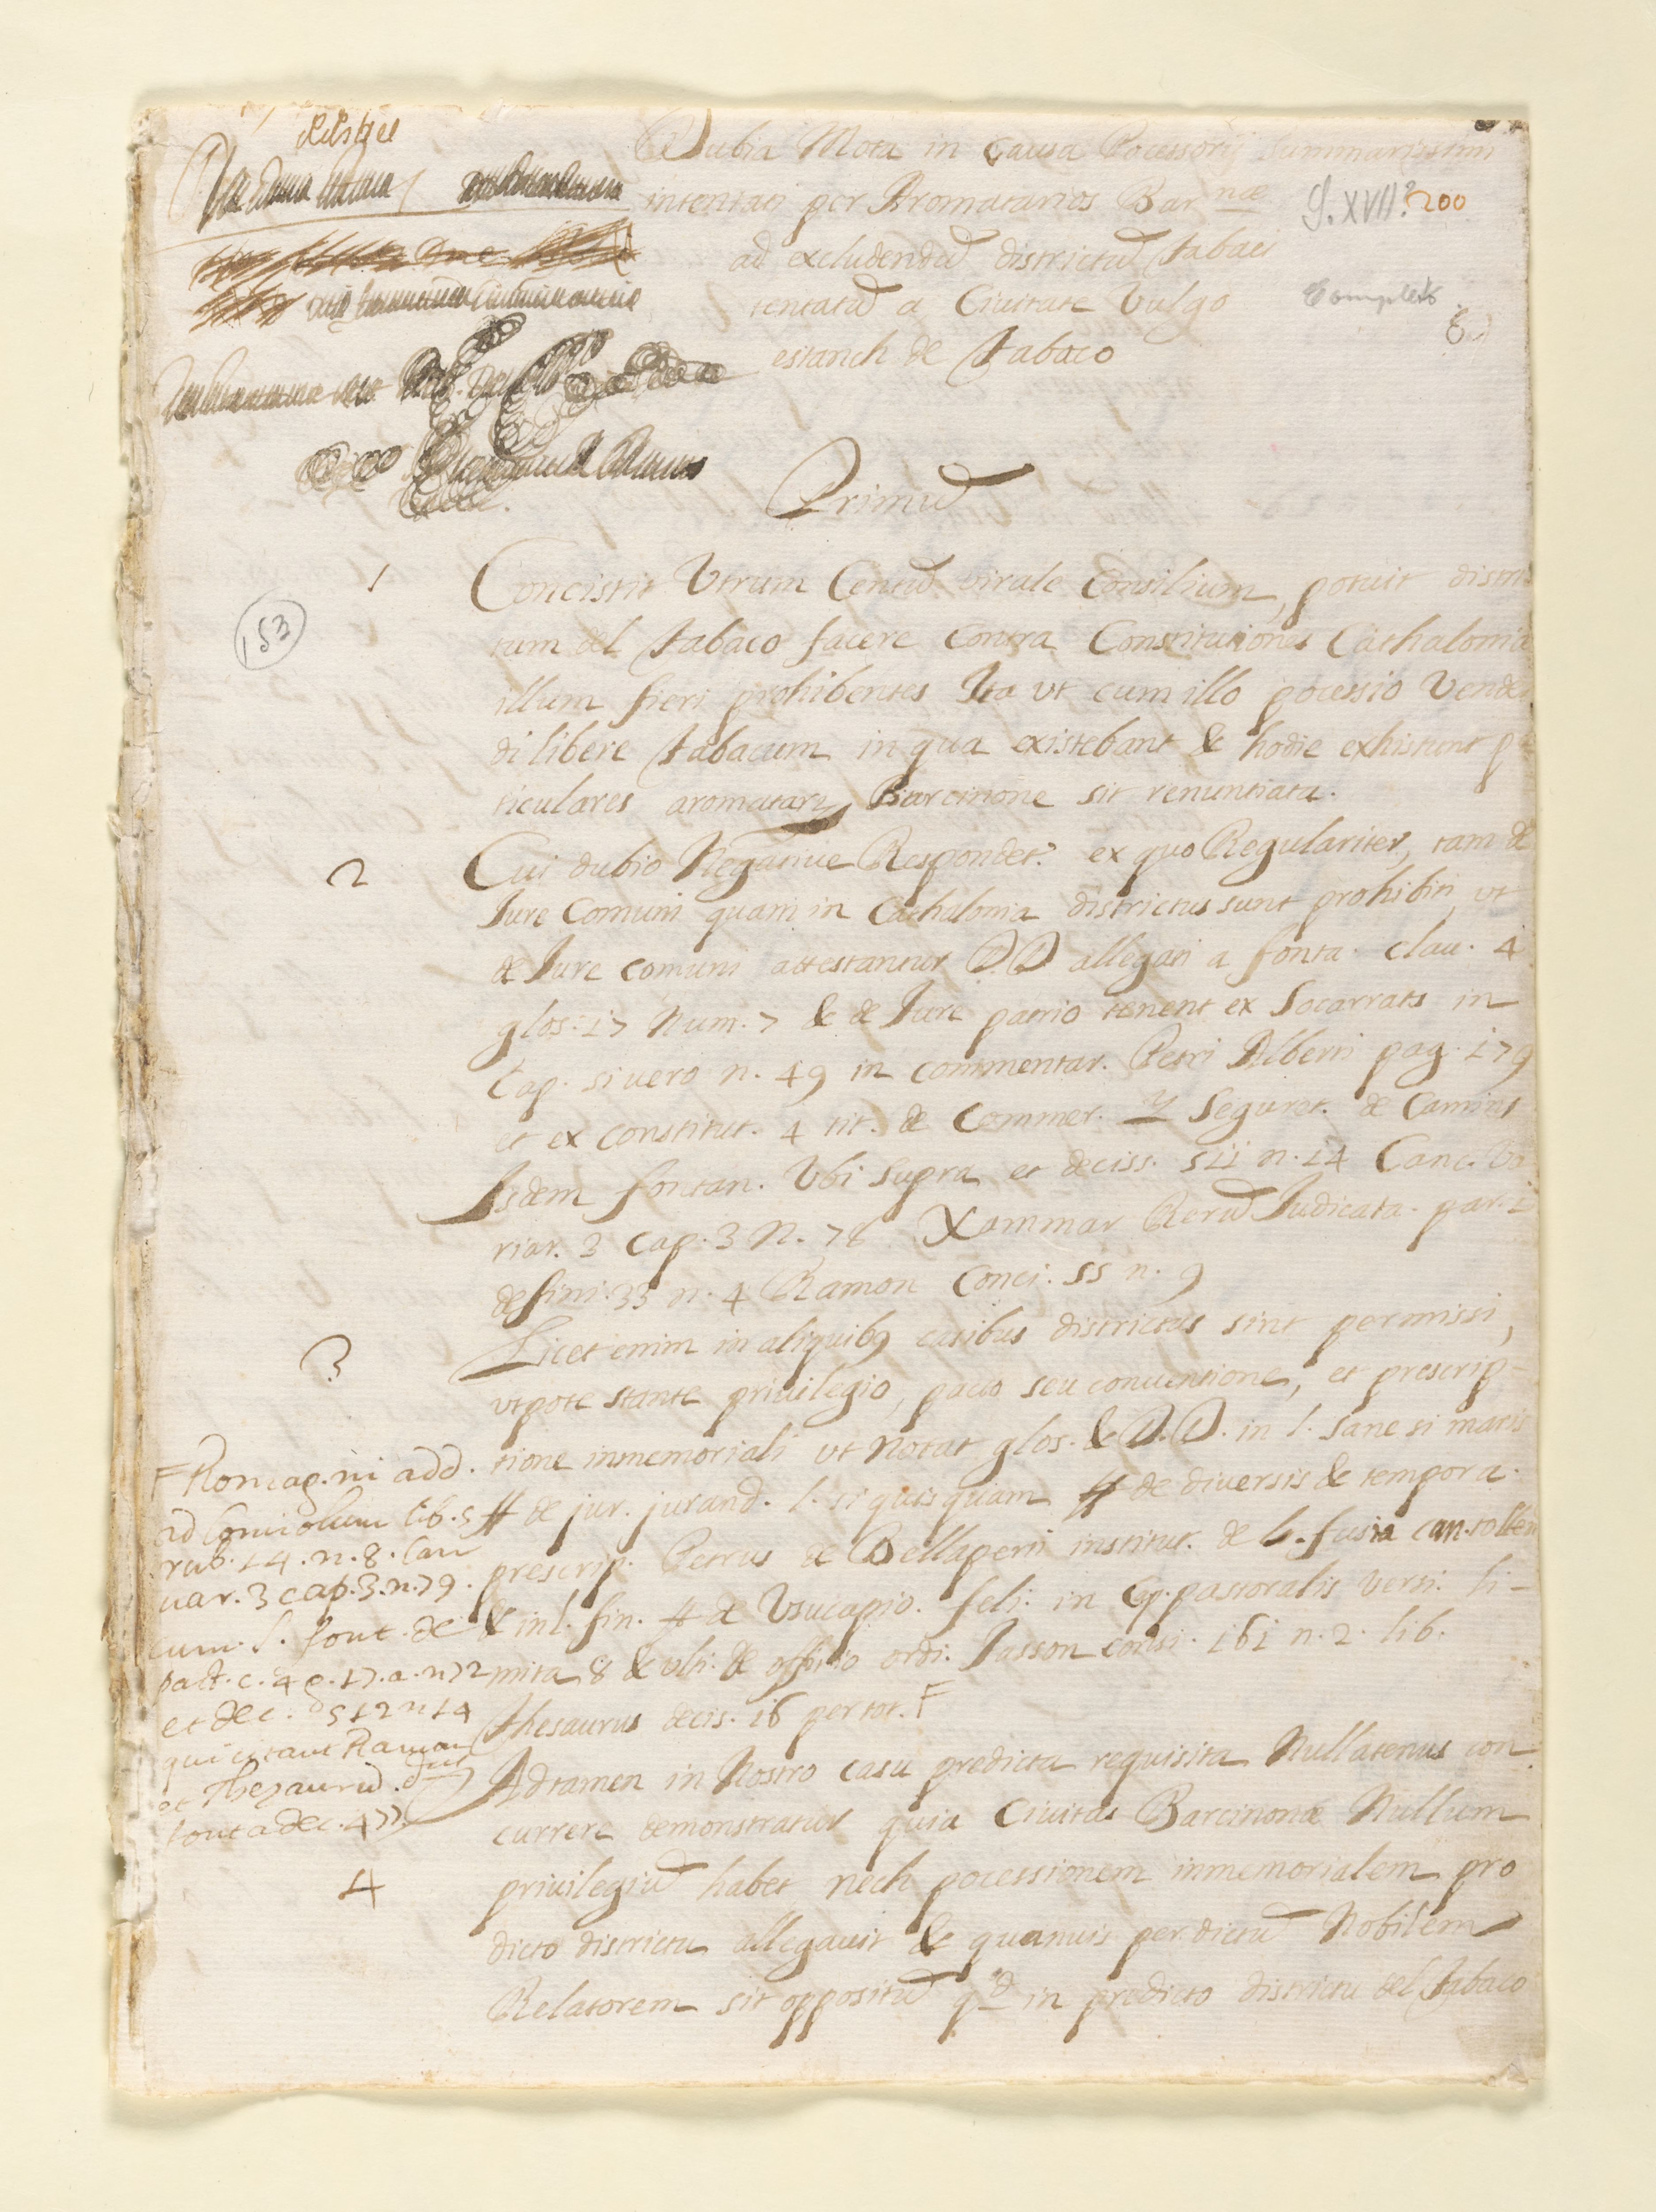 Dubia Mota in Causa Pocessorij Summarissimi
intentati per Aromatarios Barnæ
ad excludendũ districtũ tabaci
tentatũ a Ciuitate Vulgo
estanch de tabaco
S. XVII? 200
Complert
Primũ
153
1 Concistit Vtrum Centũ virale Consilium, potuit distric
tum del tabaco facere contra Constitutiones Cathalonia
illum fieri prohibentes Ita vt cum illo pocessio Vende
di libere tabacum in qua existebant & hodie exhistunt p
ticulares aromatarij Barcinone sit renuntiata.
2 Cui dubio Negatiue Respondet.r ex quo Regulariter, tam de
Jure Comuni quam in Cathalonia districtus sunt prohibiti, vt
de Jure comuni attestantur D.D allegati a fonta. clau. 4
glos. 17 Num. 7 & de Jure patrio tenent ex Socarrats in
Cap. si vero n. 49 in commentar. Petri Alberti pag. 179
et ex constitut. 4 tit. de Commer. Y Seguret. de Camins
Isdem fontan. Vbi Supra et deciss. 511 n. 14 Canc. Va
riar. 3 Cap. 3 N. 78 Xammar Rerũ Judicata. par. 1
defini. 33 n. 4 Ramon Conci. 55 n. 9
3 Licet enim in aliquibꝯ casibus districtus sint permissi,
vtpote stante priuilegio, pacto seu conuentione, et prescrip-
tione inmemoriali vt notat glos. & D.D. in l. Sane si maris
ff de jur. jurand. l. si quisquam ff de diuersis & tempora.
prescrip. Petrus de Bellaperti institut. de l. fusia can. tollen
& in l. fin. ff de Vsucapio. feli: in Cap. pastoralis Versi. li-
mita 8 & vlti. de offitio ordi. Jasson consi. 161 n. 2. lib.
thesaurus decis. 16 per tot. F
F Roncag. in add.
ad Comiolum lib. 5
rub. 14. n. 8. Can
uar. 3 cap. 3. n. 79.
cum. s. font. de
pact. c. 4 g. 17. a. n 72
et dec. 512 n 14
qui citant Ramon
et Thezaurũ. dict
fonta dec. 477.
Adtamen in Nostro casu predicta requisita Nullatenus con
currere demonstratur quia Ciuitas Barcinonæ Nullum
4 priuilegiũ habet nech pocessionem inmemorialem pro
dicto districtu allegauit & quamuis per dictũ Nobilem
Relatorem sit oppositũ qd in predicto districtu del tabaco